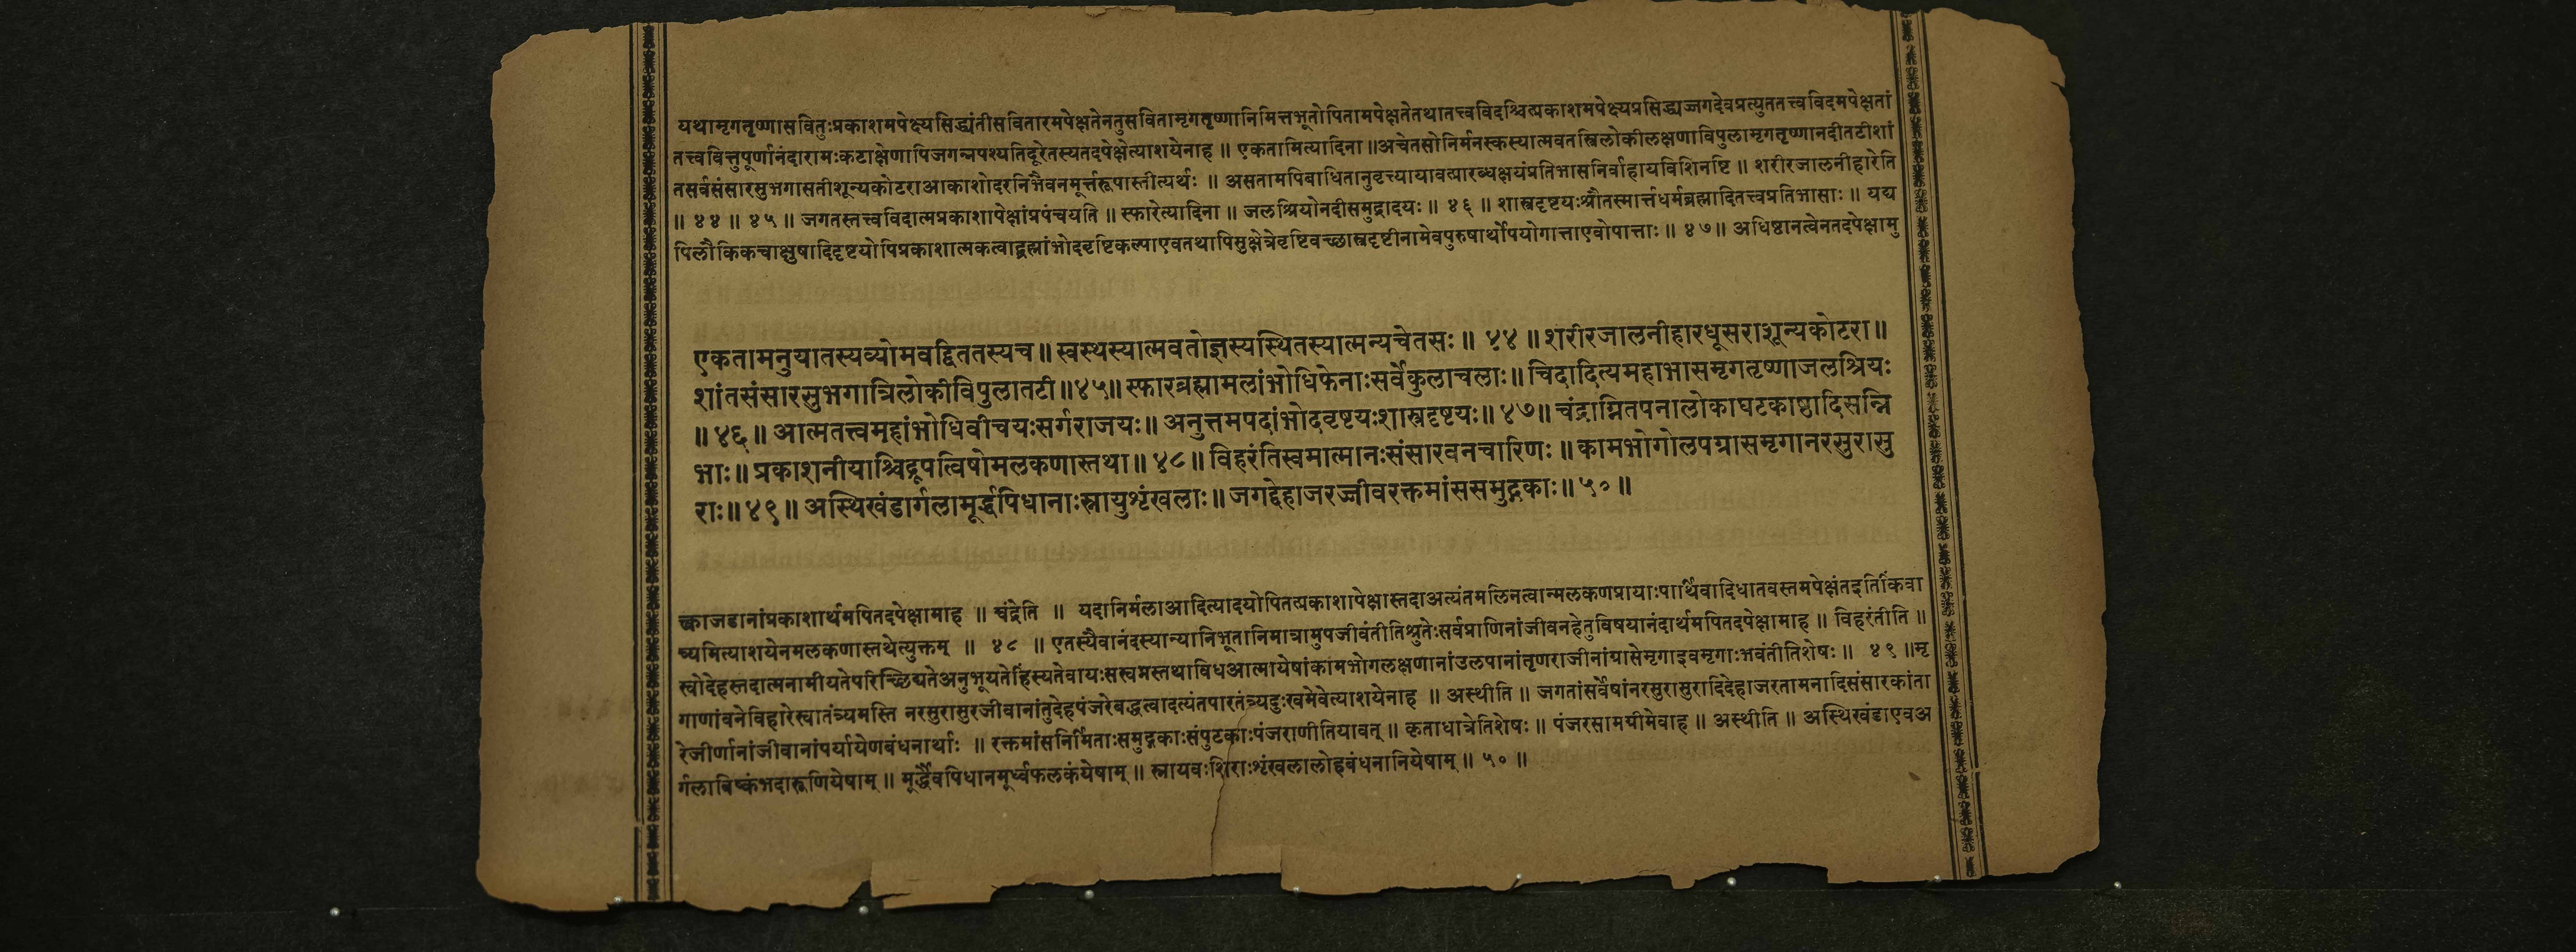 यथामृगतृष्णासवितुःप्रकाशमपेक्ष्यसिद्ध्यंतीसवितारमपेक्षतेनतुसवितामृगतृष्णानिमित्तभूतोपितामपेक्षतेतथातत्त्वविदश्चित्प्रकाशमपेक्ष्यप्रसिद्ध्यज्जगदेवप्रत्युततत्त्वविदमपेक्षतां
तत्त्ववित्तुपूर्णानंदारामःकटाक्षेणापिजगन्नपश्यतिदूरेतस्यतदपेक्षेत्याशयेनाह ॥ एकतामित्यादिना ॥ अचेतसोनिर्मनस्कस्यात्मवतस्त्रिलोकीलक्षणाविपुलामृगतृष्णानदीतटीशां
तसर्वसंसारसुभगासतीशून्यकोटराआकाशोदरनिभैवनमूर्त्तरूपास्तीत्यर्थः ॥ असतामपिबाधितानुवृत्त्यायावत्प्रारब्धक्षयंप्रतिभासनिर्वाहायविशिनष्टि ॥ शरीरजालनीहारेति
॥ ४४ ॥ ४५ ॥ जगतस्तत्त्वविदात्मप्रकाशापेक्षांप्रपंचयति ॥ स्फारेत्यादिना ॥ जलश्रियोनदीसमुद्रादयः ॥ ४६ ॥ शास्त्रदृष्टयःश्रौतस्मार्त्तधर्मब्रह्मादितत्त्वप्रतिभासाः ॥ यद्य
पिलौकिकचाक्षुषादिदृष्टयोपिप्रकाशात्मकत्वाद्ब्रह्मांभोदवृष्टिकल्पाएवतथापिसुक्षेत्रेवृष्टिवच्छास्त्रदृष्टीनामेवपुरुषार्थोपयोगात्ताएवोपात्ताः ॥ ४७ ॥ अधिष्ठानत्वेनतदपेक्षामु
एकतामनुयातस्यव्योमवद्विततस्यच ॥ स्वस्थस्यात्मवतोज्ञस्यस्थितस्यात्मन्यचेतसः ॥ ४४ ॥ शरीरजालनीहारधूसराशून्यकोटरा ॥
शांतसंसारसुभगात्रिलोकीविपुलातटी ॥ ४५ ॥ स्फारब्रह्मामलांभोधिफेनाःसर्वेकुलाचलाः ॥ चिदादित्यमहाभासमृगतृष्णाजलश्रियः
॥ ४६ ॥ आत्मतत्त्वमहांभोधिवीचयःसर्गराजयः ॥ अनुत्तमपदांभोदवृष्टयःशास्त्रदृष्टयः ॥ ४७ ॥ चंद्राग्नितपनालोकाघटकाष्ठादिसन्नि
भाः ॥ प्रकाशनीयाश्चिद्रूपत्विषोमलकणास्तथा ॥ ४८ ॥ विहरंतिस्वमात्मानःसंसारवनचारिणः ॥ कामभोगोलपग्रासमृगानरसुरासु
राः ॥ ४९ ॥ अस्थिखंडार्गलामूर्द्धपिधानाःस्नायुशृंखलाः ॥ जगद्देहाजरज्जीवरक्तमांससमुद्गकाः ॥ ५० ॥
क्त्वाजडानांप्रकाशार्थमपितदपेक्षामाह ॥ चंद्रेति ॥ यदानिर्मलाआदित्यादयोपितत्प्रकाशापेक्षास्तदाअत्यंतमलिनत्वान्मलकणप्रायाःपार्थिवादिधातवस्तमपेक्षंतइतिकिंवा
च्यमित्याशयेनमलकणास्तथेत्युक्तम् ॥ ४८ ॥ एतस्यैवानंदस्यान्यानिभूतानिमात्रामुपजीवंतीतिश्रुतेःसर्वप्राणिनांजीवनहेतुविषयानंदार्थमपितदपेक्षामाह ॥ विहरंतीति ॥
स्वोदेहस्तदात्मनामीयतेपरिच्छिद्यतेअनुभूयतेहिंस्यतेवायःसस्वमस्तथाविधआत्मायेषांकामभोगलक्षणानांउलपानांतृणराजीनांग्रासेमृगाइवमृगाःभवंतीतिशेषः ॥ ४९ ॥ मृ
गाणांवनेविहारेस्वातंत्र्यमस्ति नरसुरासुरजीवानांतुदेहपंजरेबद्धत्वादत्यंतपारतंत्र्यदुःखमेवेत्याशयेनाह ॥ अस्थीति ॥ जगतांसर्वेषांनरसुरासुरादिदेहाजरतामनादिसंसारकांता
रेजीर्णानांजीवानांपर्यायेणबंधनार्थाः ॥ रक्तमांसनिर्मिताःसमुद्गकाःसंपुटकाःपंजराणीतियावत् ॥ कृताधात्रेतिशेषः ॥ पंजरसामग्रीमेवाह ॥ अस्थीति ॥ अस्थिखंडाएवअ
र्गलाविष्कंभदारूणियेषाम् ॥ मूर्द्धैवपिधानमूर्ध्वफलकंयेषाम् ॥ स्नायवःशिराःशृंखलालोहबंधनानियेषाम् ॥ ५० ॥